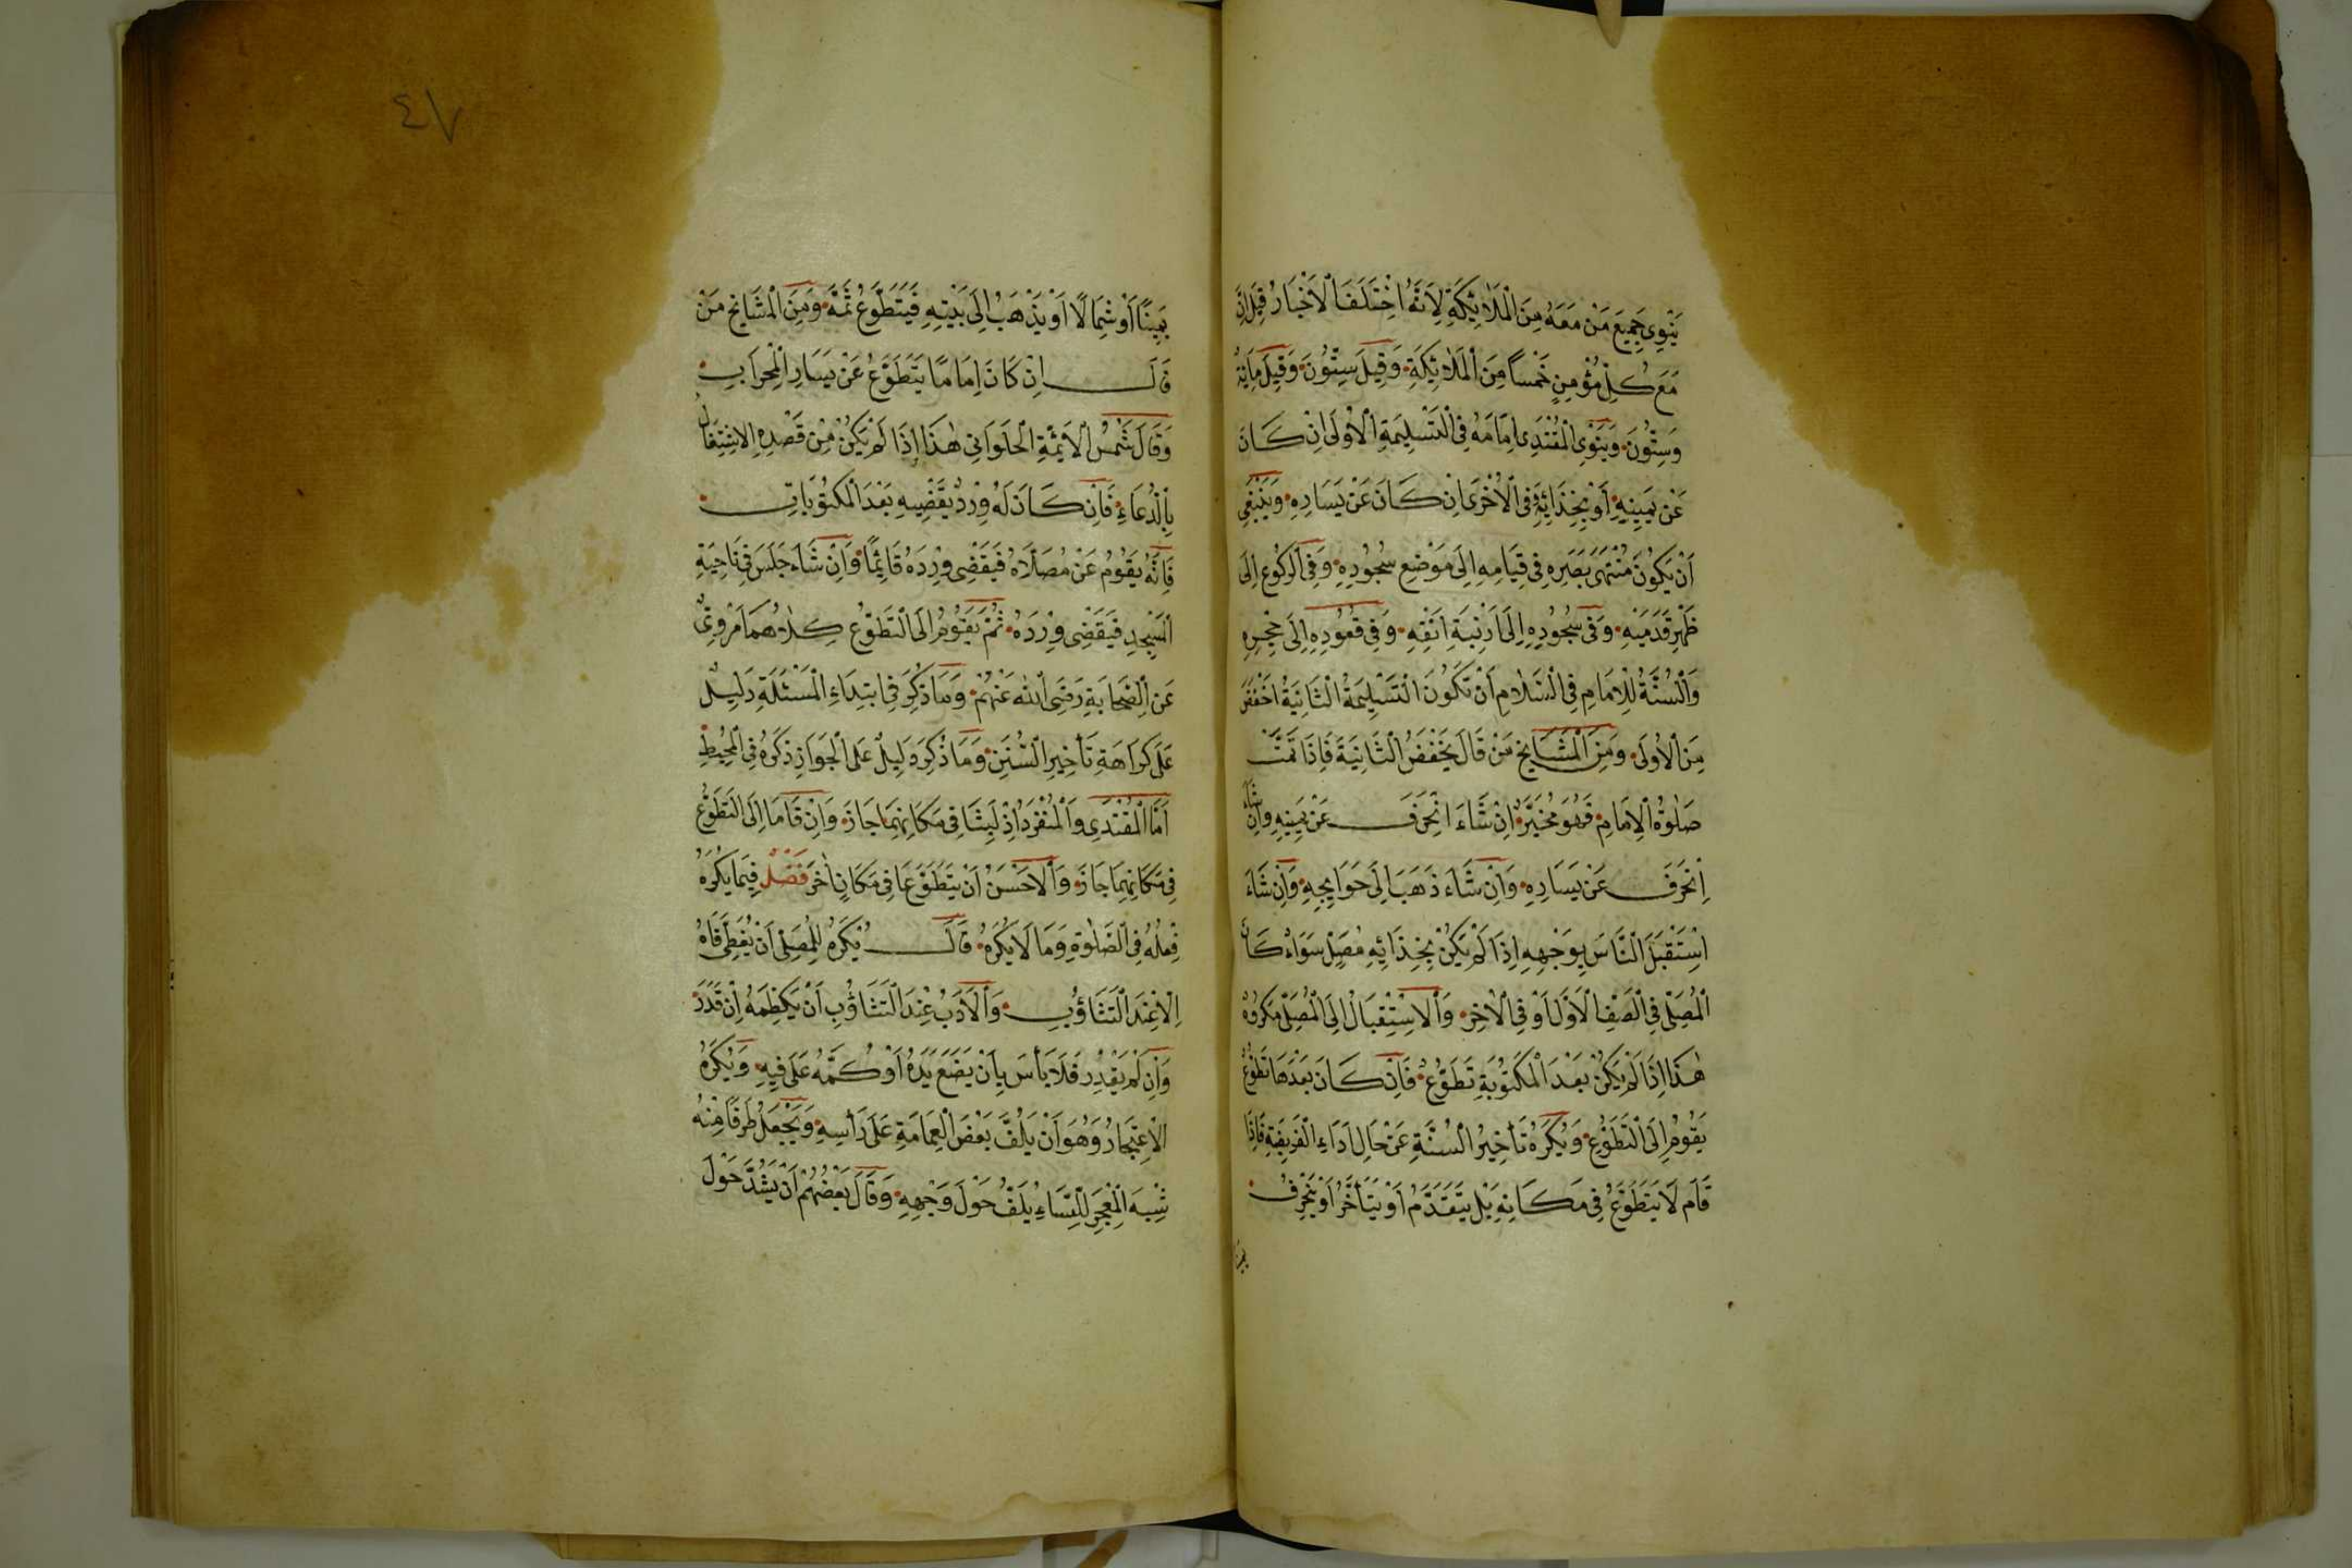 يَنْوِي جَمِيعَ مَنْ مَعَهُ مِنَ الْمَلَائِكَةِ لِأَنَّهُ اخْتَلَفَ الْأَخْبَارُ قِيلَ إِنَّ
مَعَ كُلِّ مُؤْمِنٍ خَمْساً مِنَ الْمَلَائِكَةِ وَقِيلَ سِتُّونَ وَقِيلَ مِايَةٌ
وَسِتُّونَ وَيَنْوِي الْمُقْتَدِي اِمَامَهُ فِي التَّسْلِيمَةِ الْأُولَى اِنْ كَانَ
عَنْ يَمِينِهِ أَوْ بِحِذَائِهِ وَفِي الْأُخْرَى اِنْ كَانَ عَنْ يَسَارِهِ وَيَنْبَغِي
أَنْ يَكُونَ مُنْتَهَى بَصَرِهِ فِي قِيَامِهِ إِلَى مَوْضِعِ سُجُودِهِ وَفِي الرُّكُوعِ إِلَى
ظَهْرِ قَدَمَيْهِ وَفِي سُجُودِهِ اِلَى اَرْنَبَةِ اَنْفِهِ وَفِي قُعُودِهِ اِلَى حِجْرِهِ
وَالسُّنَّةُ لِلْاِمَامِ فِي السَّلَامِ أَنْ تَكُونَ التَّسْلِيمَةُ الثَّانِيَةُ اَخْفَضَ
مِنَ الْأُولَى وَمِنَ الْمَشَايِخِ مَنْ قَالَ يَخْفَضُ الثَّانِيَةَ فَإِذَا تَمَّتْ
صَلٰوةُ الْاِمَامِ فَهُوَ مُخَيَّرٌ اِنْ شَاءَ انْحَرَفَ عَنْ يَمِينِهِ وَاِنْ شَاءَ
اِنْحَرَفَ عَنْ يَسَارِهِ وَاِنْ شَاءَ ذَهَبَ اِلَى حَوَايِجِهِ وَاِنْ شَاءَ
اسْتَقْبَلَ النَّاسَ بِوَجْهِهِ اِذَا لَمْ يَكُنْ بِحِذَائِهِ مُصَلٍّ سَوَاءٌ كَانَ
الْمُصَلِّي فِي الصَّفِّ الْأَوَّلِ أَوْ فِي الْاٰخِرِ وَالْاِسْتِقْبَالُ اِلَى الْمُصَلِّي مَكْرُوهٌ
هٰذَا اِذَا لَمْ يَكُنْ بَعْدَ الْمَكْتُوبَةِ تَطَوُّعٌ فَاِنْ كَانَ بَعْدَهَا تَطَوُّعٌ
يَقُومُ اِلَى التَّطَوُّعِ وَيُكْرَهُ تَأْخِيرُ السُّنَّةِ عَنْ حَالِ اَدَاءِ الْفَرِيضَةِ فَاِذَا
قَامَ لَا يَتَطَوَّعُ فِي مَكَانِهِ بَلْ يَتَقَدَّمُ أَوْ يَتَأَخَّرُ أَوْ يَنْحَرِفُ
٤٧
يَمِينًا أَوْ شِمَالًا اَوْ يَذْهَبُ اِلَى بَيْتِهِ فَيَتَطَوَّعُ ثَمَّةَ وَمِنَ الْمَشَايِخِ مَنْ
قَالَ اِنْ كَانَ اِمَامًا يَتَطَوَّعُ عَنْ يَسَارِ الْمِحْرَابِ
وَقَالَ شَمْسُ الْأَئِمَّةِ الْحَلَوَانِي هٰذَا إِذَا لَمْ يَكُنْ مِنْ قَصْدِهِ الْاِشْتِغَالُ
بِالدُّعَاءِ فَاِنْ كَانَ لَهُ وِرْدٌ يَقْضِيهِ بَعْدَ الْمَكْتُوبَاتِ
فَاِنَّهُ يَقُومُ عَنْ مُصَلَّاهُ فَيَقْضِي وِرْدَهُ قَائِمًا وَاِنْ شَاءَ جَلَسَ فِي نَاحِيَةِ
الْمَسْجِدِ فَيَقْضِي وِرْدَهُ ثُمَّ يَقُومُ اِلَى التَّطَوُّعِ كِلَاهُمَا مَرْوِيٌّ
عَنِ الصَّحَابَةِ رَضِيَ اللّٰهُ عَنْهُمْ وَمَا ذُكِرَ فِي ابْتِدَاءِ الْمَسْئَلَةِ دَلِيلٌ
عَلَى كَرَاهَةِ تَأْخِيرِ السُّنَنِ وَمَا ذُكِرَ دَلِيلٌ عَلَى الْجَوَازِ ذَكَرَهُ فِي الْمُحِيطِ
اَمَّا الْمُقْتَدِي وَالْمُنْفَرِدُ اِذْ لَبِثَا فِي مَكَانِهِمَا جَازَ وَاِنْ قَامَا اِلَى التَّطَوُّعِ
فِي مَكَانِهِمَا جَازَ وَالْأَحْسَنُ اَنْ يَتَطَوَّعَا فِي مَكَانٍ اٰخَرَ فَصْلٌ فِيمَا يُكْرَهُ
فِعْلُهُ فِي الصَّلٰوةِ وَمَا لَا يُكْرَهُ قَالَ يُكْرَهُ لِلْمُصَلِّي اَنْ يُغَطِّيَ فَاهُ
اِلَّا عِنْدَ التَّثَاؤُبِ وَالْأَدَبُ عِنْدَ التَّثَاؤُبِ أَنْ يَكْظِمَهُ اِنْ قَدَرَ
وَاِنْ لَمْ يَقْدِرْ فَلَا بَأْسَ بِأَنْ يَضَعَ يَدَهُ أَوْ كُمَّهُ عَلَى فِيهِ وَيُكْرَهُ
الْاِعْتِجَارُ وَهُوَ اَنْ يَلُفَّ بَعْضَ الْعِمَامَةِ عَلَى رَأْسِهِ وَيَجْعَلُ طَرَفًا مِنْهُ
شِبْهَ الْمِعْجَرِ لِلنِّسَاءِ يُلَفُّ حَوْلَ وَجْهِهِ وَقَالَ بَعْضُهُمْ أَنْ يَشُدَّ حَوْلَ